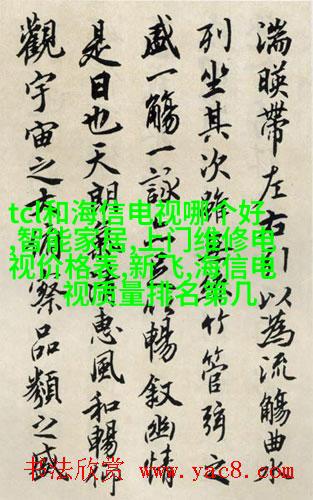 湍暎帶左右引以為流觴曲
列坐其次竹管弦之
盛一觴一詠暢敘幽情
是日也天朗惠風和暢仰
觀宇宙之察品類之盛
tcl和海信电视哪个好
,智能家居,上门维修电
视价格表,新飞,海信电
视质量排名第几
书法欣赏 www.yac8.com